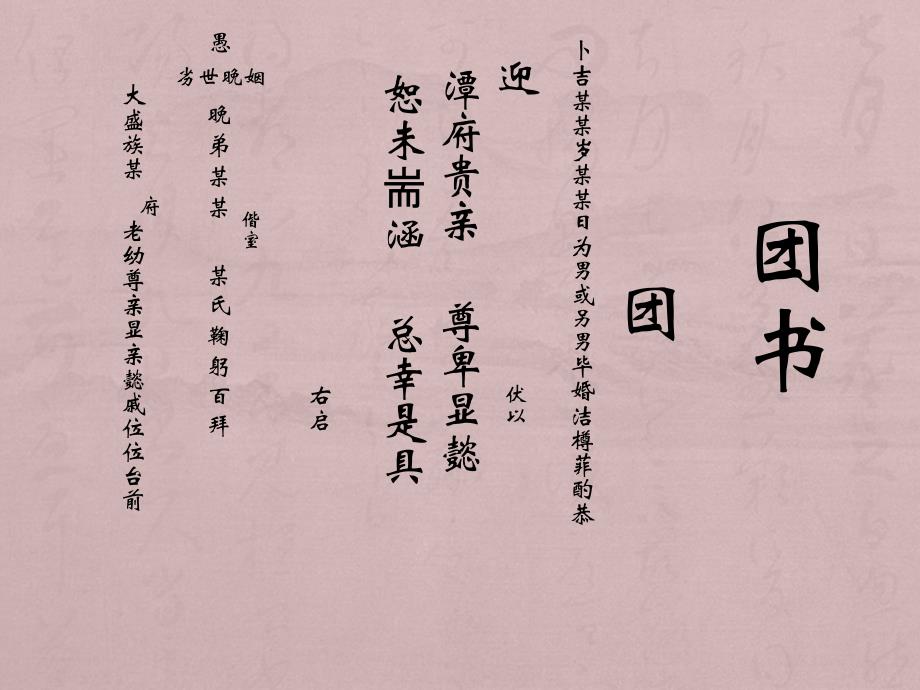 团书
团
卜吉某某岁某某日为男或另男毕婚洁樽菲酌恭
迎
伏以
潭府贵亲 尊卑显懿
恕未耑涵 总幸是具
右启
偕室
愚
劣世晚姻
晚弟某某 某氏鞠躬百拜
府
大盛族某 老幼尊亲显亲懿戚位位台前